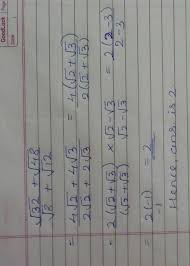 GoodLuck Page
Date
√32 + √48
√8 + √12
= 4√2 + 4√3 = 4(√2 + √3)
2√2 + 2√3 2(√2 + √3)
= 2(√2 + √3) × √2 - √3 = 2(2 - 3)
(√2 + √3) √2 - √3 2 - 3
= 2(-1) = 2
-1
Hence, ans is 2